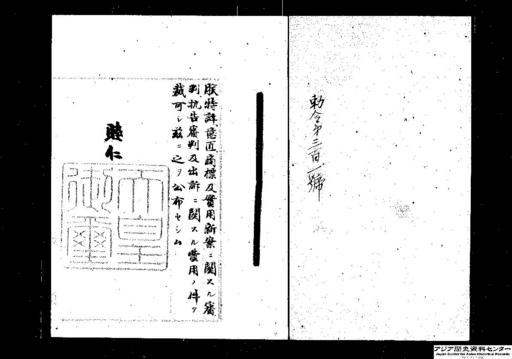 勅令第三百一號
朕特許意匠商標及實用新案ニ関スル審
判抗告審判及出訴ニ関スル費用ノ件ヲ
裁可シ茲ニ之ヲ公布セシム
睦仁
天皇
御璽
アジア歴史資料センター
Japan Center for Asian Historical Records